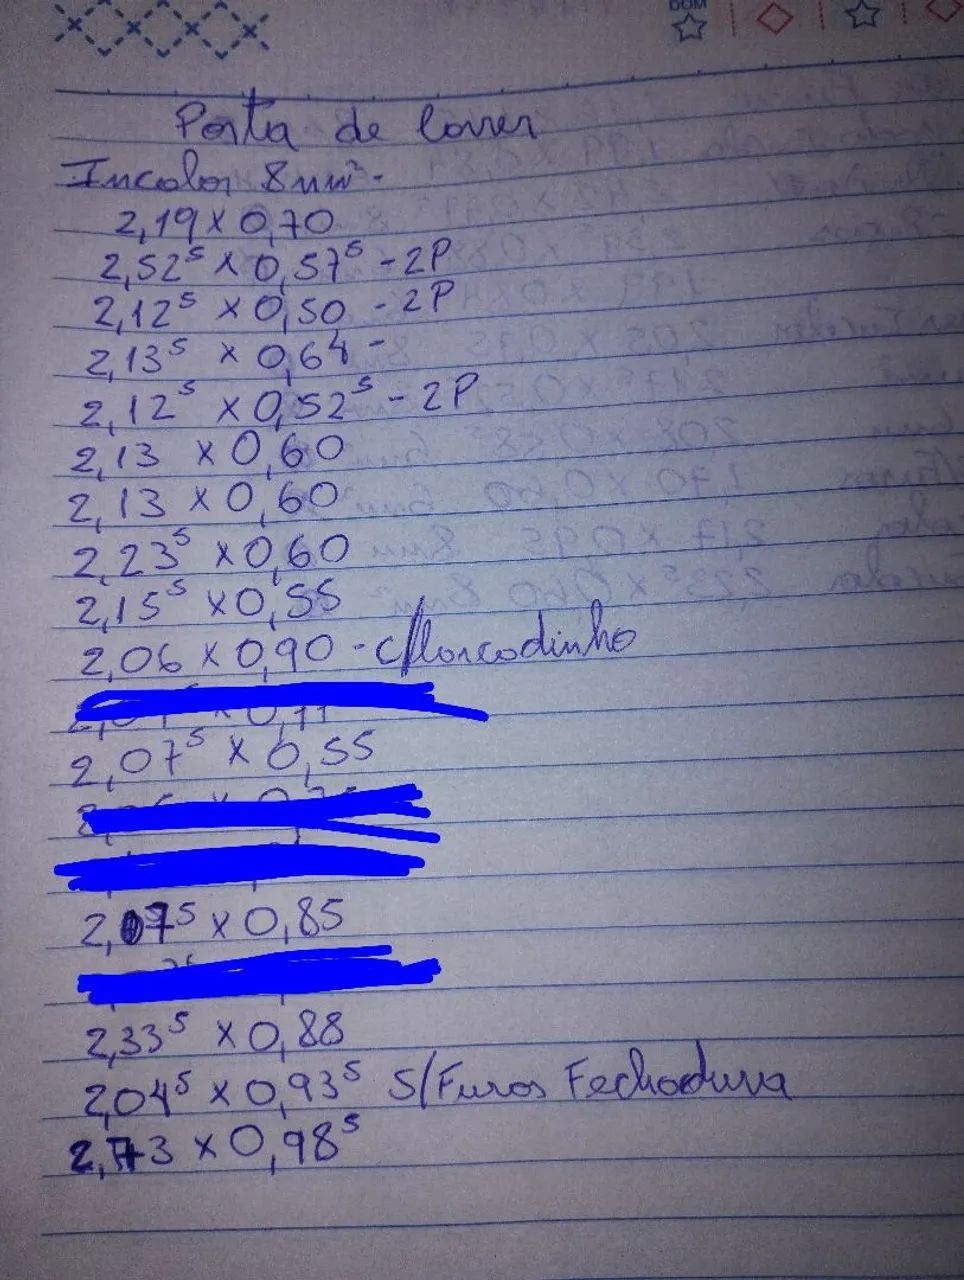 DOM
Porta de Correr
Incolor 8mm.
2,19 x 0,70
2,52⁵ x 0,57⁵ - 2P
2,12⁵ x 0,50 - 2P
2,13⁵ x 0,64 -
2,12⁵ x 0,52⁵ - 2P
2,13 x 0,60
2,13 x 0,60
2,23⁵ x 0,60
2,15⁵ x 0,55
2,06 x 0,90 - c/Roscadinho
2,07⁵ x 0,55
2,07⁵ x 0,85
2,33⁵ x 0,88
2,04⁵ x 0,93⁵ S/Furos Fechadura
2,73 x 0,98⁵